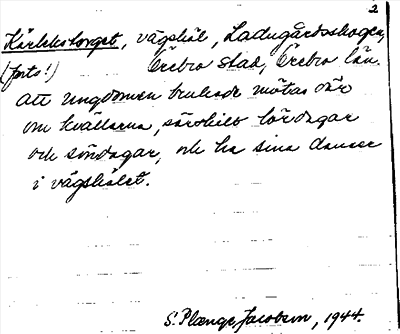 2
Kärlekstorget, vägskäl, Ladugårdsskogen,
(forts!) Örebro stad, Örebro län.
att ungdomen brukade mötas där
om kvällarna, särskilt lördagar
och söndagar, och ha sina danser
i vägskälet.
S. Plænge Jacobson, 1944.